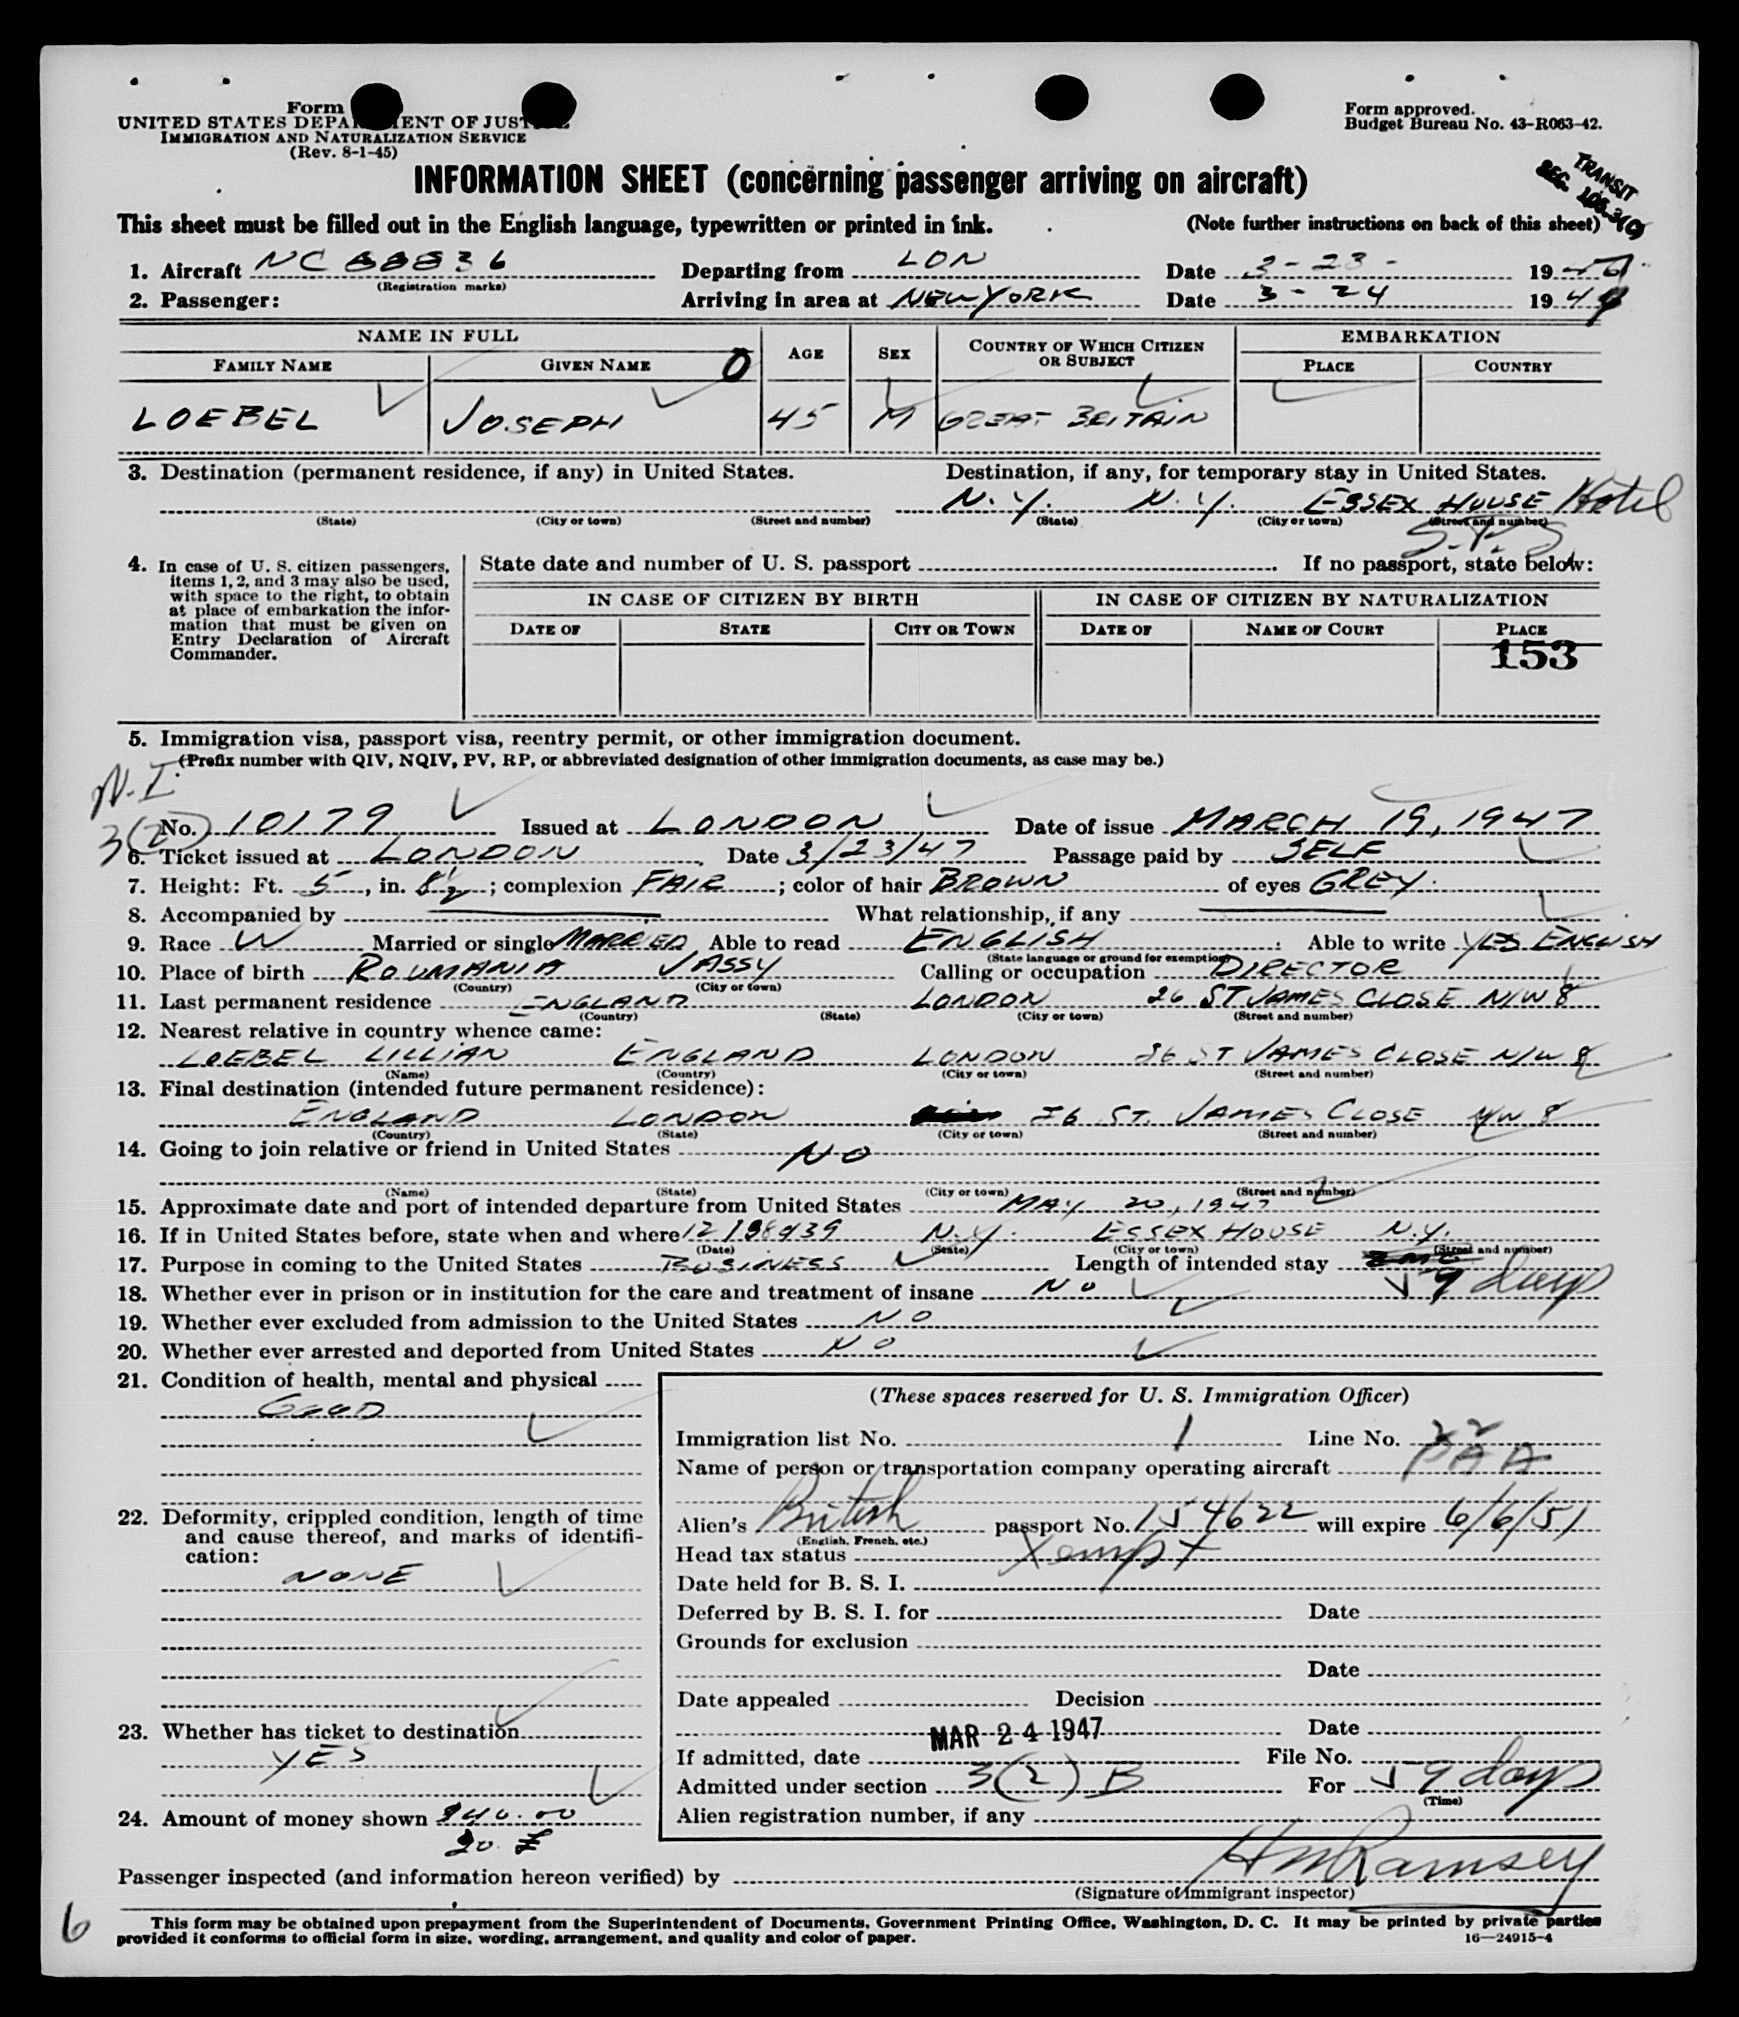 Form
UNITED STATES DEPARTMENT OF JUSTICE
IMMIGRATION AND NATURALIZATION SERVICE
(Rev. 8-1-45)
Form approved.
Budget Bureau No. 43-R063-42.
INFORMATION SHEET (concerning passenger arriving on aircraft)
TRANSIT
SEC.
This sheet must be filled out in the English language, typewritten or printed in ink. (Note further instructions on back of this sheet)
1. Aircraft NC 88836 Departing from LON Date 3-23- 19 47
(Registration marks)
2. Passenger: Arriving in area at NEW YORK Date 3-24 19 47
NAME IN FULL AGE SEX COUNTRY OF WHICH CITIZEN OR SUBJECT EMBARKATION
FAMILY NAME GIVEN NAME O PLACE COUNTRY
LOEBEL JOSEPH 45 M GREAT BRITAIN
3. Destination (permanent residence, if any) in United States. Destination, if any, for temporary stay in United States.
N.Y. N.Y. ESSEX HOUSE Hotel
(State) (City or town) (Street and number) (State) (City or town) (Street and number)
4. In case of U. S. citizen passengers, items 1, 2, and 3 may also be used, with space to the right, to obtain at place of embarkation the information that must be given on Entry Declaration of Aircraft Commander.
State date and number of U. S. passport If no passport, state below:
IN CASE OF CITIZEN BY BIRTH IN CASE OF CITIZEN BY NATURALIZATION
DATE OF STATE CITY OR TOWN DATE OF NAME OF COURT PLACE
153
5. Immigration visa, passport visa, reentry permit, or other immigration document.
(Prefix number with QIV, NQIV, PV, RP, or abbreviated designation of other immigration documents, as case may be.)
N.I.
3(2)
No. 10179 Issued at LONDON Date of issue MARCH 19, 1947
6. Ticket issued at LONDON Date 3/23/47 Passage paid by SELF
7. Height: Ft. 5, in. 8½; complexion FAIR; color of hair BROWN of eyes GREY.
8. Accompanied by What relationship, if any
9. Race W Married or single MARRIED Able to read ENGLISH Able to write YES ENGLISH
(State language or ground for exemption)
10. Place of birth ROUMANIA JASSY Calling or occupation DIRECTOR
(Country) (City or town)
11. Last permanent residence ENGLAND LONDON 26 ST JAMES CLOSE N/W 8
(Country) (State) (City or town) (Street and number)
12. Nearest relative in country whence came:
LOEBEL LILLIAN ENGLAND LONDON 26 ST JAMES CLOSE N/W 8
(Name) (Country) (City or town) (Street and number)
13. Final destination (intended future permanent residence):
ENGLAND LONDON 26 ST. JAMES CLOSE N/W 8
(Country) (State) (City or town) (Street and number)
14. Going to join relative or friend in United States NO
(Name) (State) (City or town) (Street and number)
15. Approximate date and port of intended departure from United States MAY 20, 1947
16. If in United States before, state when and where N.Y. ESSEX HOUSE N.Y.
(Date) (State) (City or town) (Street and number)
17. Purpose in coming to the United States BUSINESS Length of intended stay 59 days
18. Whether ever in prison or in institution for the care and treatment of insane NO
19. Whether ever excluded from admission to the United States NO
20. Whether ever arrested and deported from United States NO
21. Condition of health, mental and physical
GOOD
22. Deformity, crippled condition, length of time and cause thereof, and marks of identification:
NONE
23. Whether has ticket to destination
YES
24. Amount of money shown 240.00
20 £
(These spaces reserved for U. S. Immigration Officer)
Immigration list No. 1 Line No. 22
Name of person or transportation company operating aircraft PAA
Alien's British passport No. 154622 will expire 6/6/51
(English, French, etc.)
Head tax status Xempt
Date held for B. S. I.
Deferred by B. S. I. for Date
Grounds for exclusion
Date
Date appealed Decision
Date
MAR 24 1947
If admitted, date File No.
Admitted under section 3(2) B For 59 days
(Time)
Alien registration number, if any
Passenger inspected (and information hereon verified) by HM Ramsey
(Signature of immigrant inspector)
6
This form may be obtained upon prepayment from the Superintendent of Documents, Government Printing Office, Washington, D. C. It may be printed by private parties
provided it conforms to official form in size, wording, arrangement, and quality and color of paper.
16—24915-4